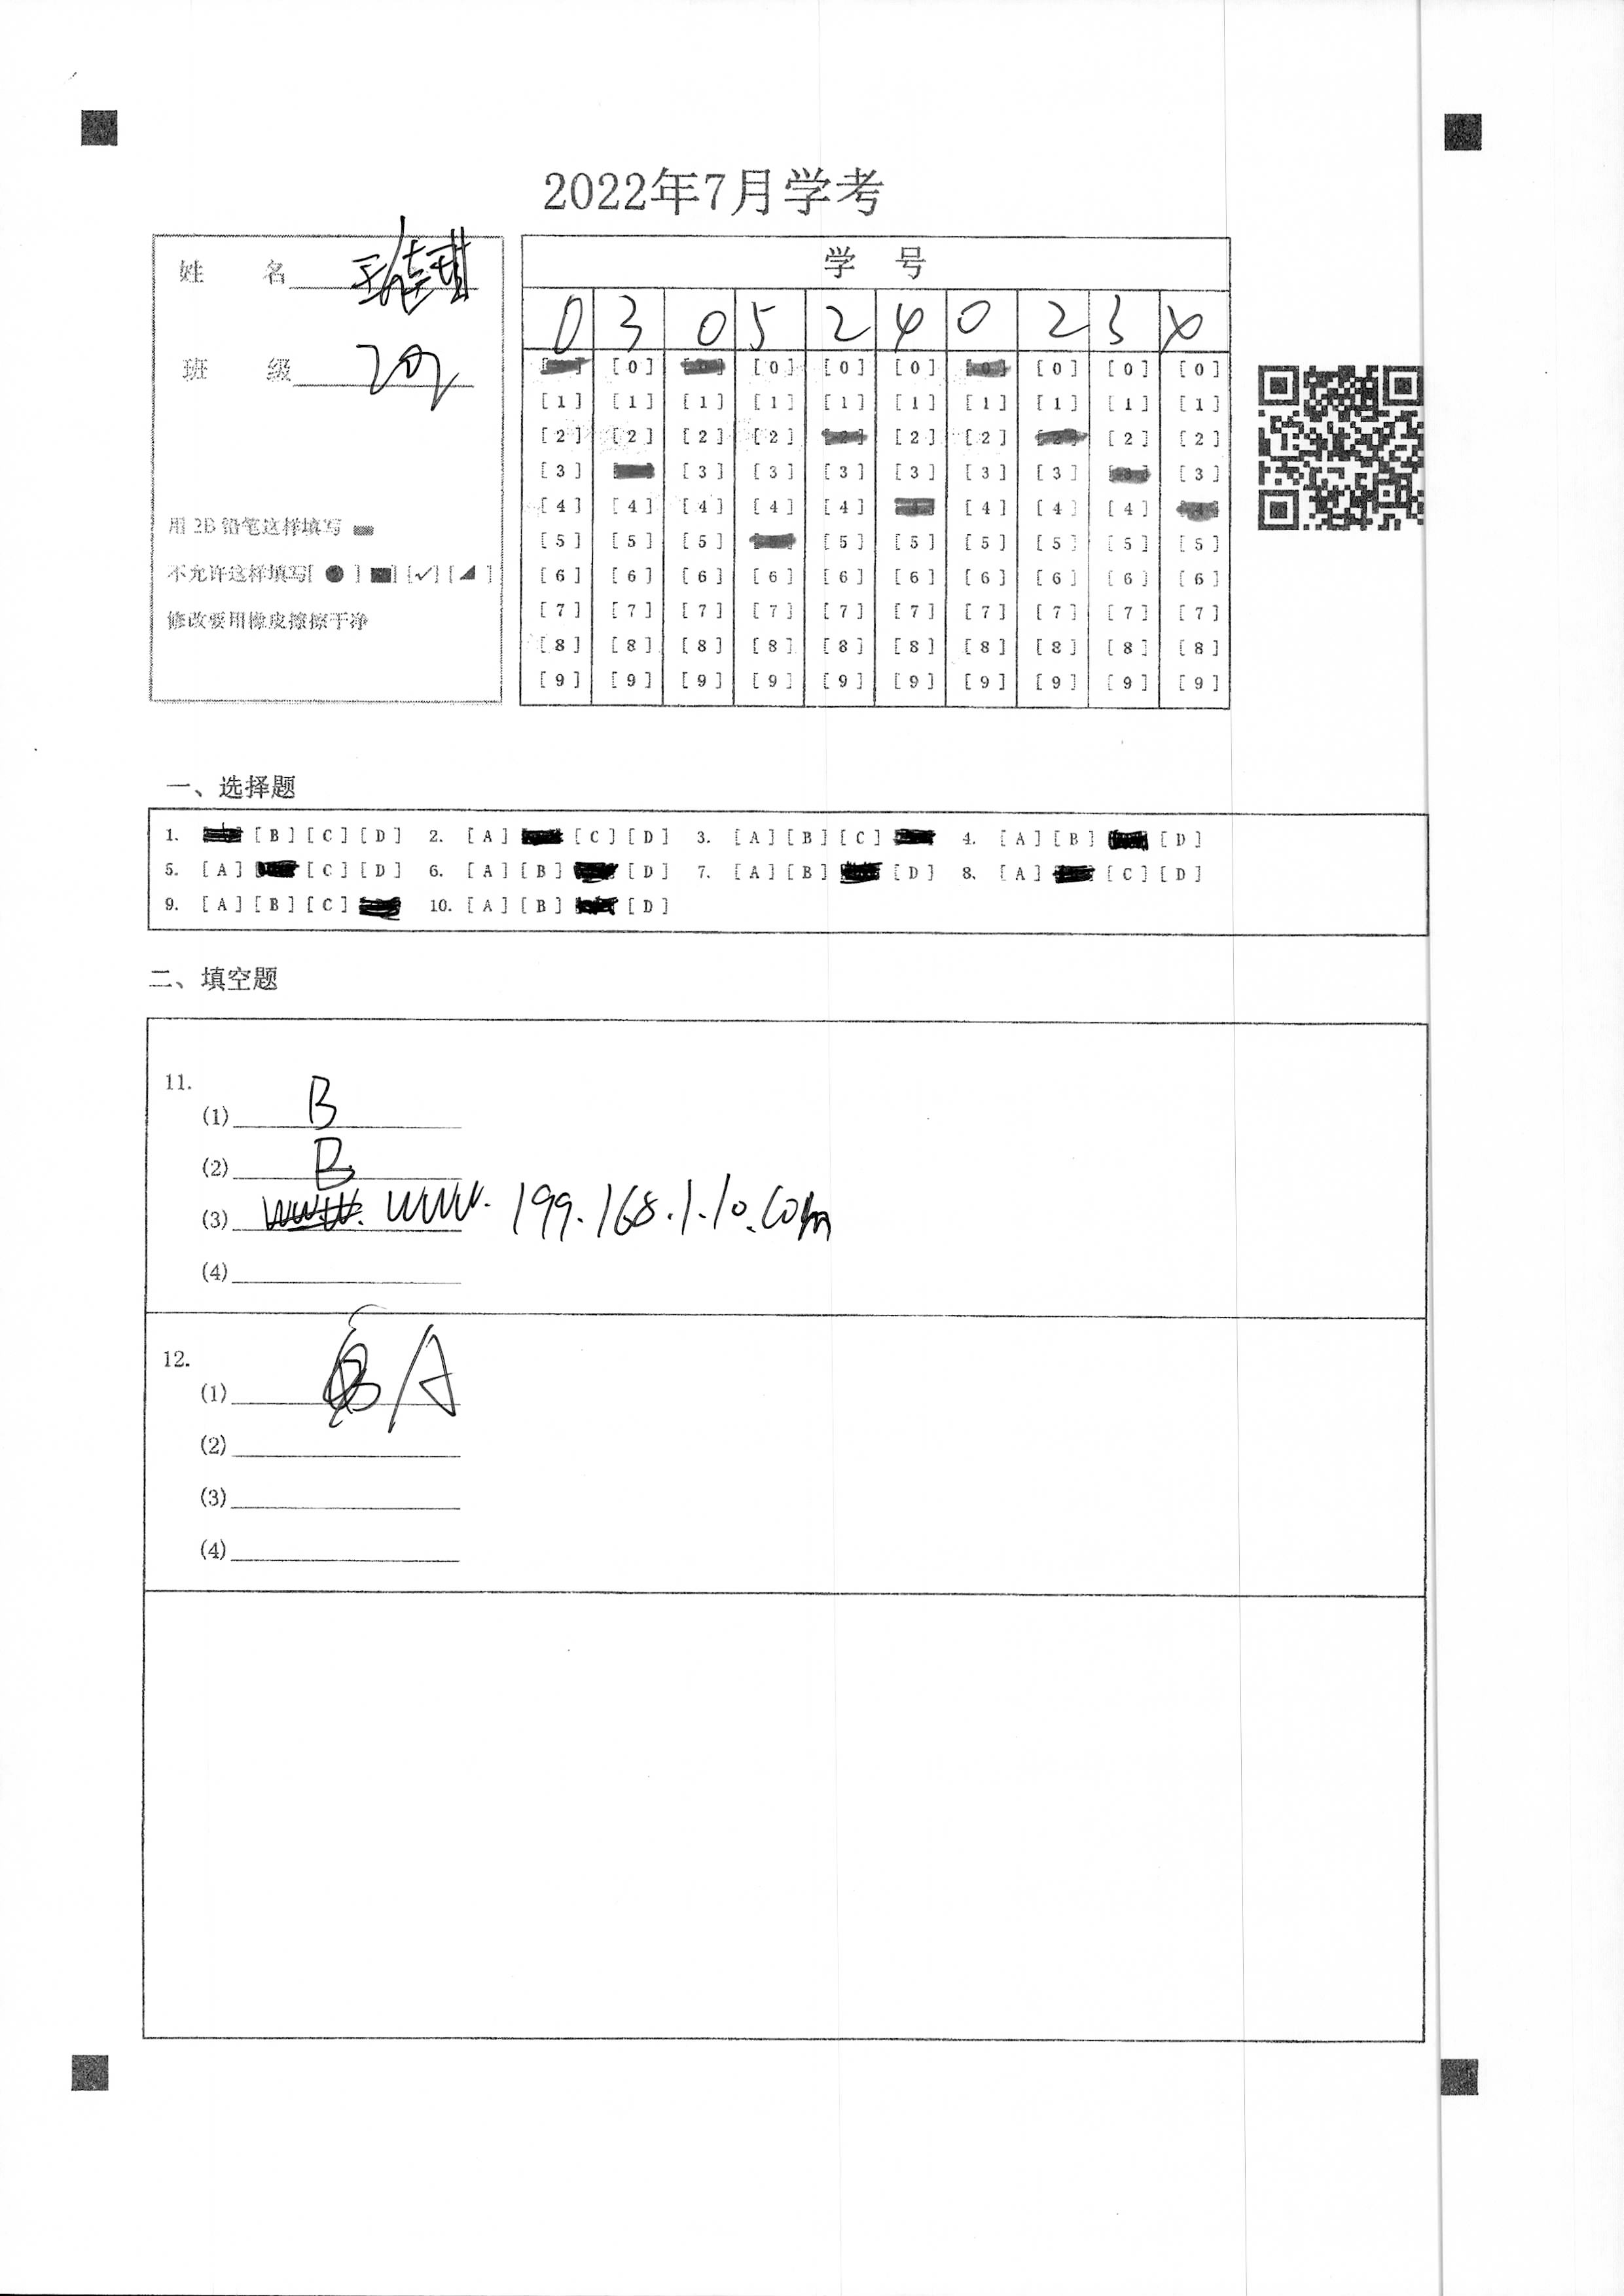 2022年7月学考
姓 名
班 级 202
用 2B 铅笔这样填写
不允许这样填写[ ● ] [■] [✓] [◢ ]
修改要用橡皮擦擦干净
学 号
0 3 0 5 2 4 0 2 3 4
[0] [0] [0] [0] [0] [0] [0]
[1] [1] [1] [1] [1] [1] [1] [1] [1] [1]
[2] [2] [2] [2] [2] [2] [2] [2] [2] [2]
[3] [3] [3] [3] [3] [3] [3] [3] [3]
[4] [4] [4] [4] [4] [4] [4] [4] [4]
[5] [5] [5] [5] [5] [5] [5] [5] [5]
[6] [6] [6] [6] [6] [6] [6] [6] [6] [6]
[7] [7] [7] [7] [7] [7] [7] [7] [7] [7]
[8] [8] [8] [8] [8] [8] [8] [8] [8] [8]
[9] [9] [9] [9] [9] [9] [9] [9] [9] [9]
一、选择题
1. [B] [C] [D] 2. [A] [C] [D] 3. [A] [B] [C] 4. [A] [B] [D]
5. [A] [C] [D] 6. [A] [B] [D] 7. [A] [B] [D] 8. [A] [C] [D]
9. [A] [B] [C] 10. [A] [B] [D]
二、填空题
11.
(1) B
(2) B
(3) www. 199.168.1.10.com
(4)
12.
(1) A
(2)
(3)
(4)